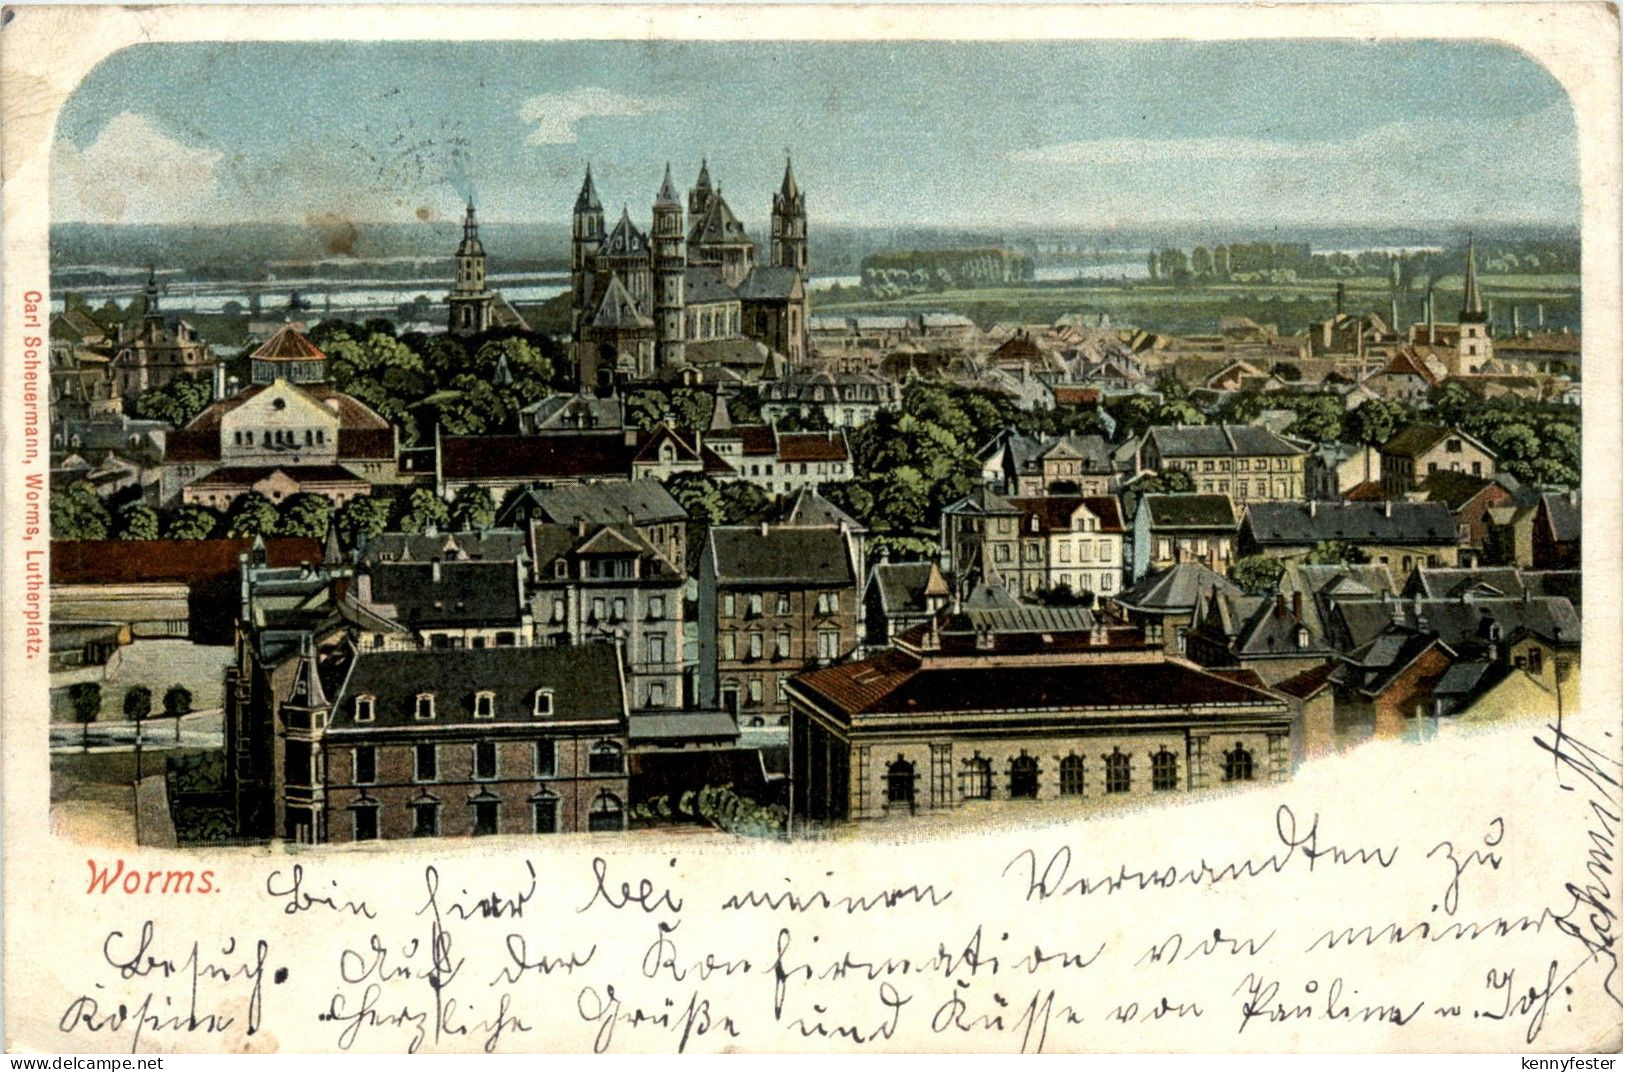 Carl Scheuermann, Worms, Lutherplatz.
Worms.
Bin hier bei meinen Verwandten zu
Besuch. Auf der Konfirmation von meiner
Kosine. Herzliche Grüße und Küsse von Pauline u. Joh:
Schmitt.
delcampe.net
kennyfester